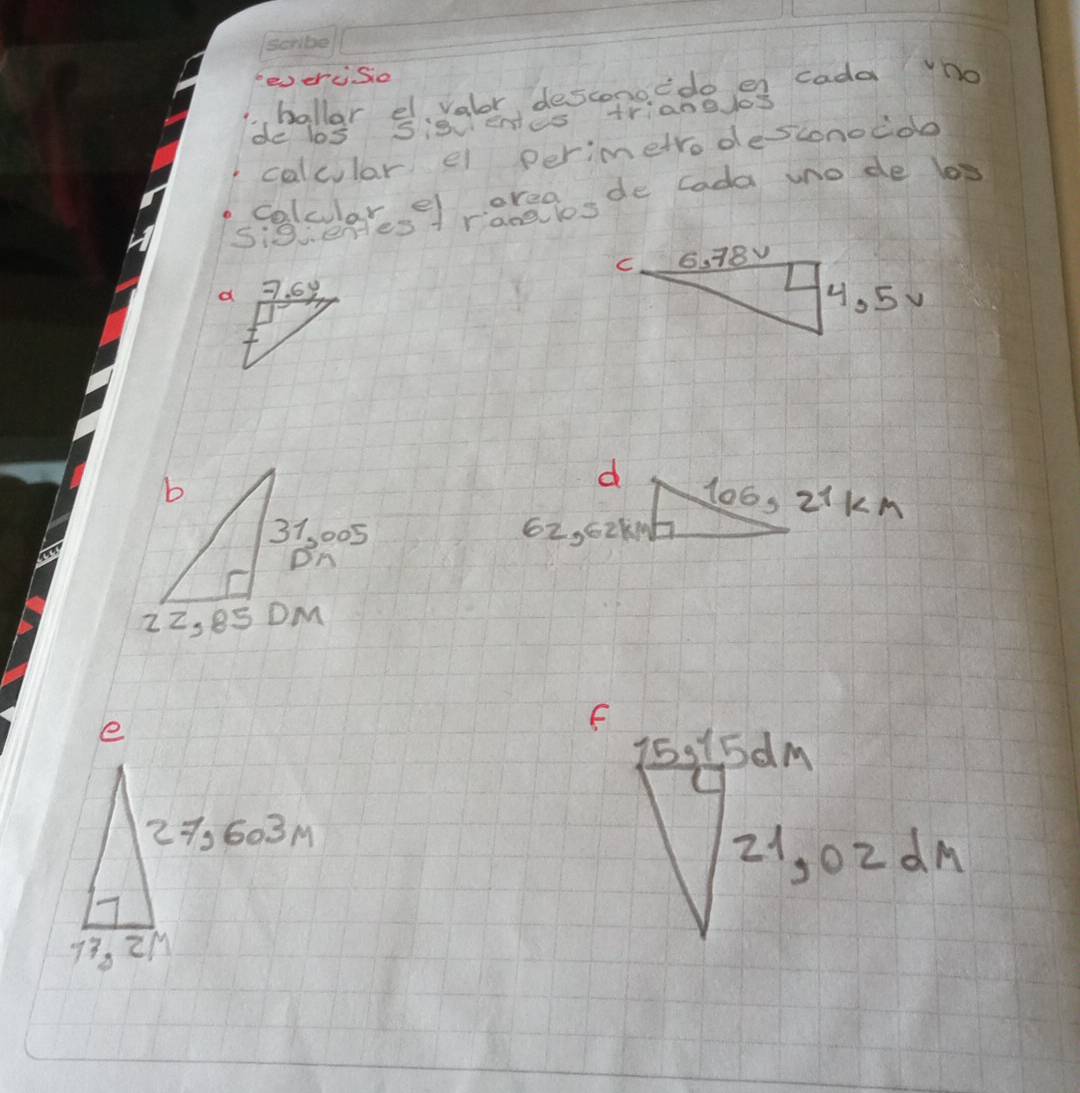 Scribe
exerciSo
hallar el valor desconocido en cada uno
de los siguientes triangulos
calcular el perimetro desconocido
calcular el area de cada uno de los
siguientes triangulos
a 7,64
c 6,78v
4,5v
b
31,005
Dm
22,85 DM
d 106,21 km
62,62km
e
27,603M
17,2M
F
15,15dm
21,02dm